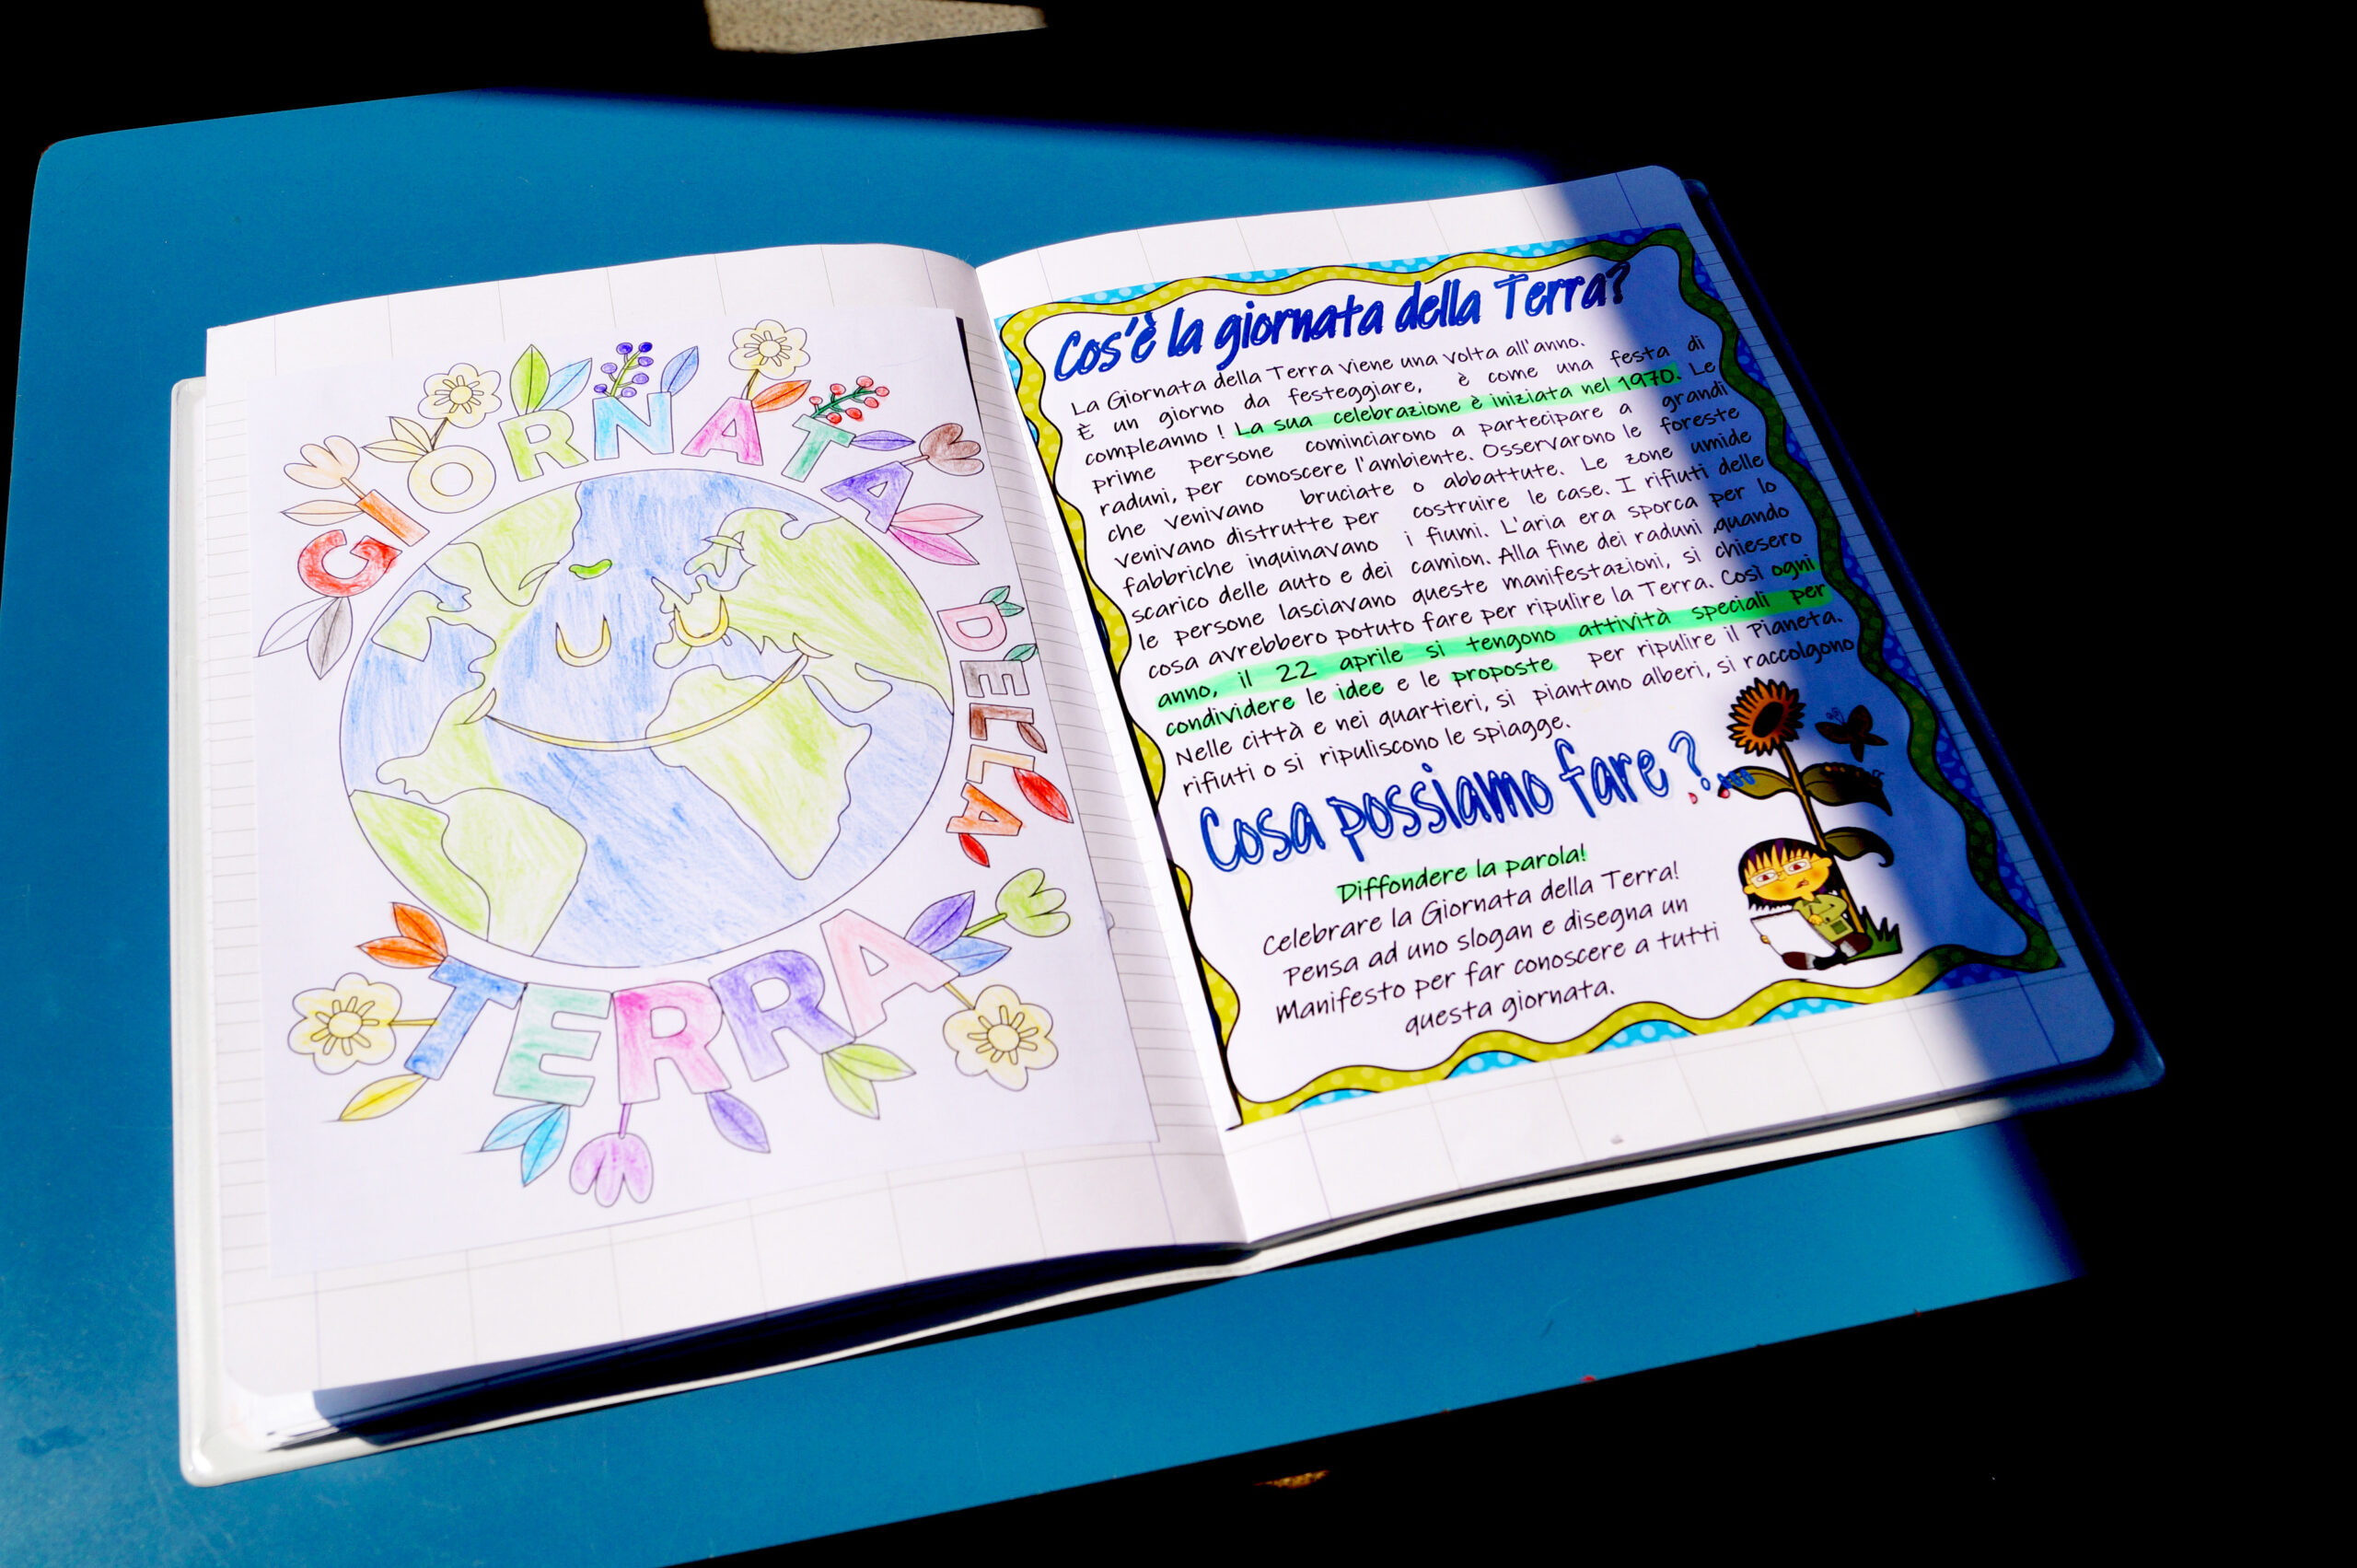 GIORNATA
DELLA
TERRA
Cos'è la giornata della Terra?
La Giornata della Terra viene una volta all'anno.
È un giorno da festeggiare, è come una festa di
compleanno ! La sua celebrazione è iniziata nel 1970. Le
prime persone cominciarono a partecipare a grandi
raduni, per conoscere l'ambiente. Osservarono le foreste
che venivano bruciate o abbattute. Le zone umide
venivano distrutte per costruire le case. I rifiuti delle
fabbriche inquinavano i fiumi. L'aria era sporca per lo
scarico delle auto e dei camion. Alla fine dei raduni ,quando
le persone lasciavano queste manifestazioni, si chiesero
cosa avrebbero potuto fare per ripulire la Terra. Così ogni
anno, il 22 aprile si tengono attività speciali per
condividere le idee e le proposte per ripulire il Pianeta.
Nelle città e nei quartieri, si piantano alberi, si raccolgono
rifiuti o si ripuliscono le spiagge.
Cosa possiamo fare ?...
Diffondere la parola!
Celebrare la Giornata della Terra!
Pensa ad uno slogan e disegna un
Manifesto per far conoscere a tutti
questa giornata.